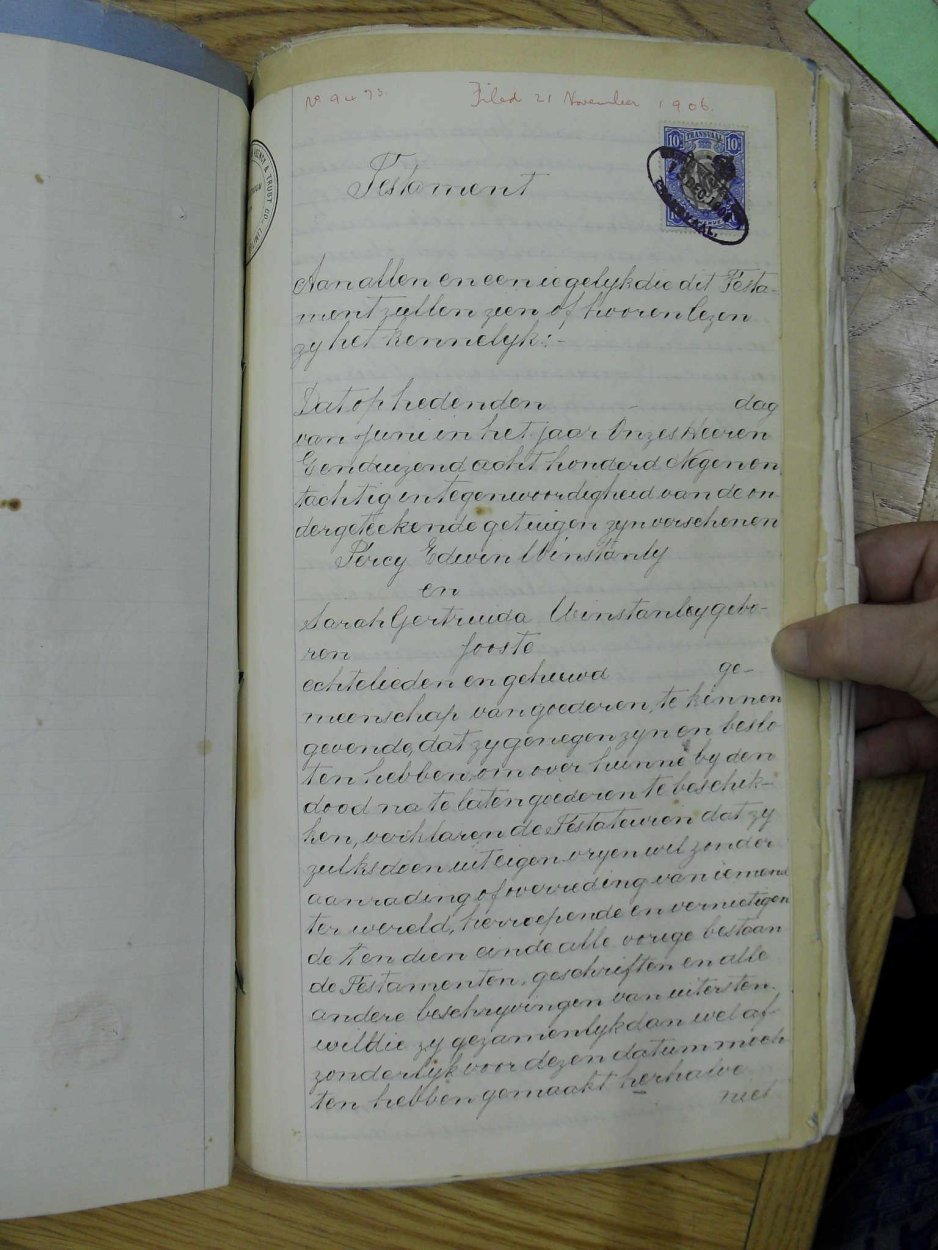 No 9473. Filed 21 November 1906.
& TRUST CO. LIMITED
TRANSVAAL
10/ 10/
TRANSVAAL.
Testament
Aan allen en een iegelyk die dit Testa-
ment zullen zien of hooren lezen
zy het kennelyk:-
Dat op heden den - dag
van Juni in het jaar Onzes Heeren
Eenduizend acht honderd Negen en
tachtig in tegenwoordigheid van de on-
dergeteekende getuigen zyn verschenen
Percy Edwin Winstanly
en
Sarah Gertruida Winstanley gebo-
ren Jooste
echtelieden en gehuwd ge-
meenschap van goederen, te kennen
gevende, dat zy genegen zyn en beslo
ten hebben, om over hunne by den
dood na te laten goederen te beschik-
ken, verklaren de Testateuren dat zy
zulks doen uit eigen vryen wil zonder
aanrading of overreding van iemand
ter wereld, herroepende en vernietigen
de ten dien einde alle vorige bestaan
de Testamenten, geschriften en alle
andere beschryvingen van uitersten
wil die zy gezamenlyk dan wel af-
zonderlyk voor dezen datum moch
ten hebben gemaakt herhalve
niet